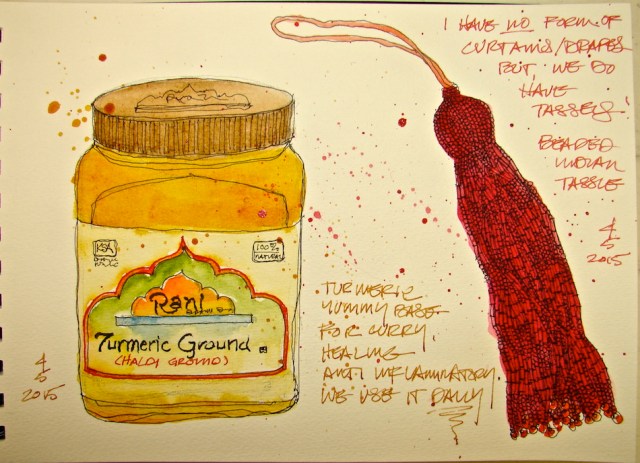 I HAVE NO FORM OF
CURTAINS/DRAPES
BUT WE DO
HAVE
TASSELS!
BEADED
INDIAN
TASSLE
4
5
2015
KSA
100%
NATURAL
Rani
Turmeric Ground
(HALDI GROUND)
4
5
2015
TURMERIC
YUMMY BASE
FOR CURRY.
HEALING
ANTI INFLAMMATORY.
WE USE IT DAILY